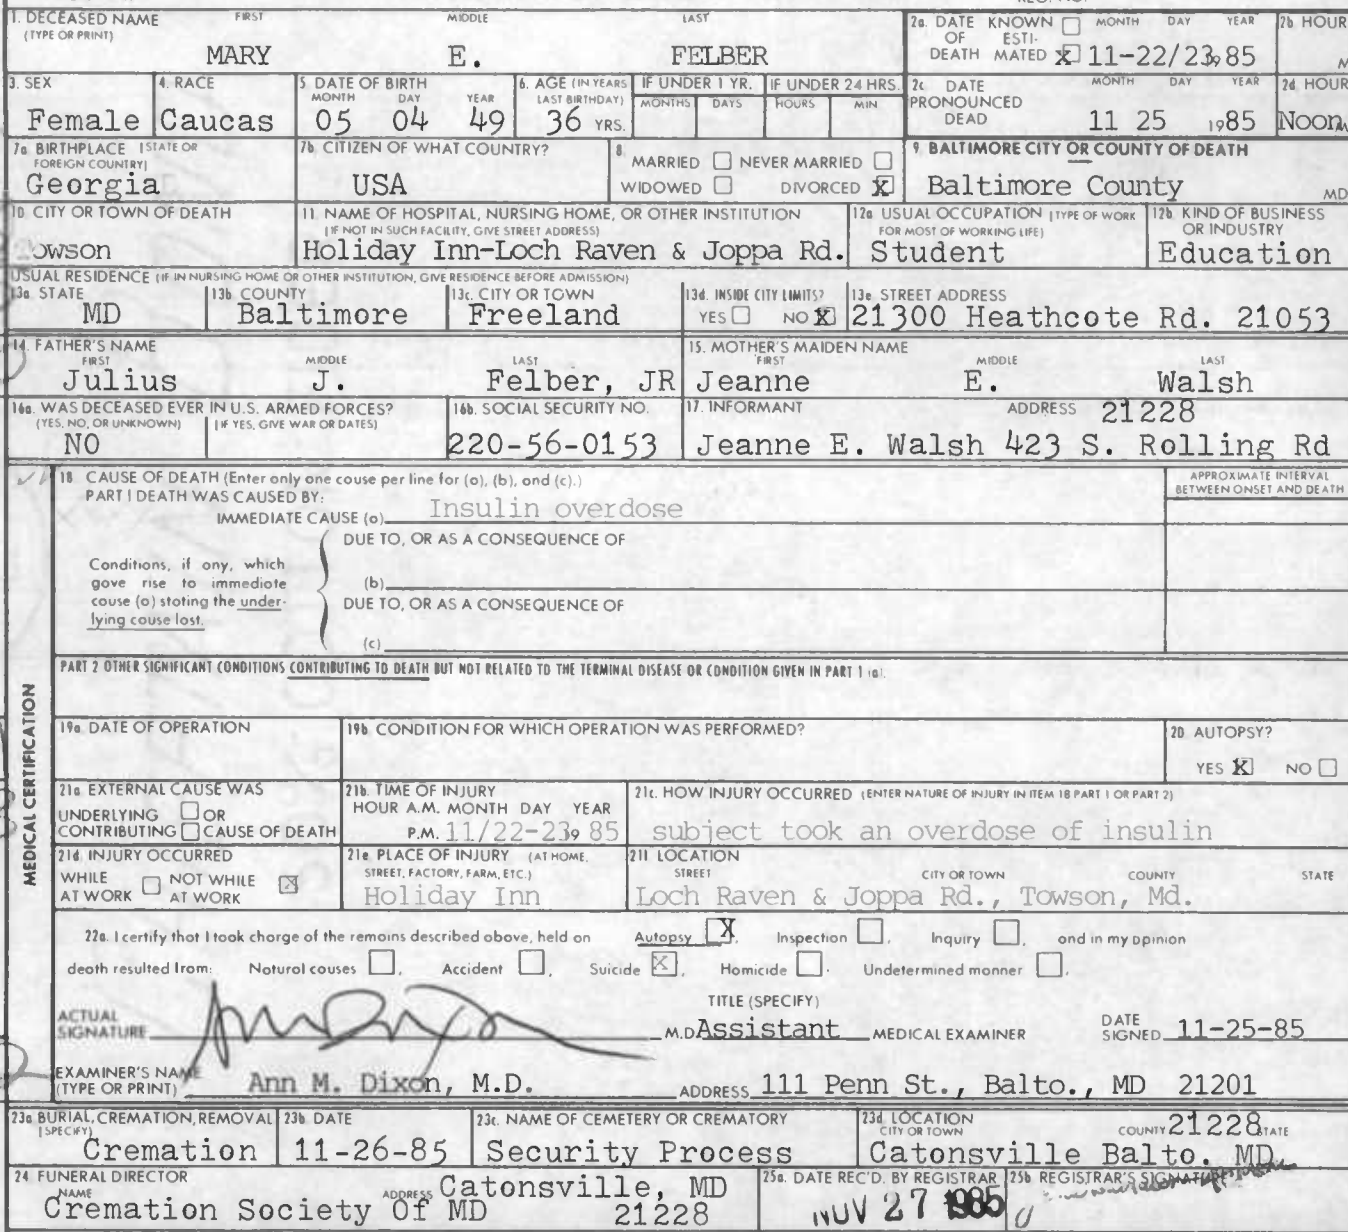 1. DECEASED NAME FIRST MIDDLE LAST
(TYPE OR PRINT)
MARY E. FELBER
2a. DATE KNOWN ☐ MONTH DAY YEAR
OF ESTI-
DEATH MATED ☒ 11-22/23, 85
2b HOUR
M
3. SEX
Female
4. RACE
Caucas
5 DATE OF BIRTH
MONTH DAY YEAR
05 04 49
6. AGE (IN YEARS
LAST BIRTHDAY)
36 YRS.
IF UNDER 1 YR.
MONTHS DAYS
IF UNDER 24 HRS.
HOURS MIN
2c DATE MONTH DAY YEAR
PRONOUNCED
DEAD 11 25 1985
2d HOUR
Noon
7a BIRTHPLACE (STATE OR
FOREIGN COUNTRY)
Georgia
7b CITIZEN OF WHAT COUNTRY?
USA
8
MARRIED ☐ NEVER MARRIED ☐
WIDOWED ☐ DIVORCED ☒
9 BALTIMORE CITY OR COUNTY OF DEATH
Baltimore County
MD
10 CITY OR TOWN OF DEATH
Towson
11. NAME OF HOSPITAL, NURSING HOME, OR OTHER INSTITUTION
(IF NOT IN SUCH FACILITY, GIVE STREET ADDRESS)
Holiday Inn-Loch Raven & Joppa Rd.
12a USUAL OCCUPATION (TYPE OF WORK
FOR MOST OF WORKING LIFE)
Student
12b. KIND OF BUSINESS
OR INDUSTRY
Education
USUAL RESIDENCE (IF IN NURSING HOME OR OTHER INSTITUTION, GIVE RESIDENCE BEFORE ADMISSION)
13a. STATE
MD
13b COUNTY
Baltimore
13c. CITY OR TOWN
Freeland
13d. INSIDE CITY LIMITS?
YES ☐ NO ☒
13e STREET ADDRESS
21300 Heathcote Rd. 21053
14. FATHER'S NAME
FIRST MIDDLE LAST
Julius J. Felber, JR
15. MOTHER'S MAIDEN NAME
FIRST MIDDLE LAST
Jeanne E. Walsh
16a. WAS DECEASED EVER IN U.S. ARMED FORCES?
(YES, NO, OR UNKNOWN) (IF YES, GIVE WAR OR DATES)
NO
16b. SOCIAL SECURITY NO.
220-56-0153
17. INFORMANT ADDRESS 21228
Jeanne E. Walsh 423 S. Rolling Rd
MEDICAL CERTIFICATION
18 CAUSE OF DEATH (Enter only one cause per line for (a), (b), and (c).)
PART I DEATH WAS CAUSED BY:
IMMEDIATE CAUSE (a) Insulin overdose
APPROXIMATE INTERVAL
BETWEEN ONSET AND DEATH
DUE TO, OR AS A CONSEQUENCE OF
Conditions, if any, which
gave rise to immediate
cause (a) stating the under-
lying cause last.
(b)
DUE TO, OR AS A CONSEQUENCE OF
(c)
PART 2 OTHER SIGNIFICANT CONDITIONS CONTRIBUTING TO DEATH BUT NOT RELATED TO THE TERMINAL DISEASE OR CONDITION GIVEN IN PART 1 (a).
19a DATE OF OPERATION
19b CONDITION FOR WHICH OPERATION WAS PERFORMED?
20 AUTOPSY?
YES ☒ NO ☐
21a EXTERNAL CAUSE WAS
UNDERLYING ☐ OR
CONTRIBUTING ☐ CAUSE OF DEATH
21b. TIME OF INJURY
HOUR A.M. MONTH DAY YEAR
P.M. 11/22-239 85
21c. HOW INJURY OCCURRED (ENTER NATURE OF INJURY IN ITEM 18 PART 1 OR PART 2)
subject took an overdose of insulin
21d INJURY OCCURRED
WHILE ☐ NOT WHILE ☒
AT WORK AT WORK
21e PLACE OF INJURY (AT HOME,
STREET, FACTORY, FARM, ETC.)
Holiday Inn
21f LOCATION
STREET CITY OR TOWN COUNTY STATE
Loch Raven & Joppa Rd., Towson, Md.
22a. I certify that I took charge of the remains described above, held on Autopsy ☒, Inspection ☐, Inquiry ☐, and in my opinion
death resulted from: Natural causes ☐, Accident ☐, Suicide ☒, Homicide ☐. Undetermined manner ☐.
ACTUAL
SIGNATURE
TITLE (SPECIFY)
M.D. Assistant MEDICAL EXAMINER
DATE
SIGNED 11-25-85
EXAMINER'S NAME
(TYPE OR PRINT) Ann M. Dixon, M.D.
ADDRESS 111 Penn St., Balto., MD 21201
23a BURIAL, CREMATION, REMOVAL
(SPECIFY)
Cremation
23b DATE
11-26-85
23c. NAME OF CEMETERY OR CREMATORY
Security Process
23d LOCATION
CITY OR TOWN COUNTY 21228 STATE
Catonsville Balto. MD
24 FUNERAL DIRECTOR
NAME ADDRESS Catonsville, MD
Cremation Society Of MD 21228
25a. DATE REC'D. BY REGISTRAR
NOV 27 1985
25b REGISTRAR'S SIGNATURE